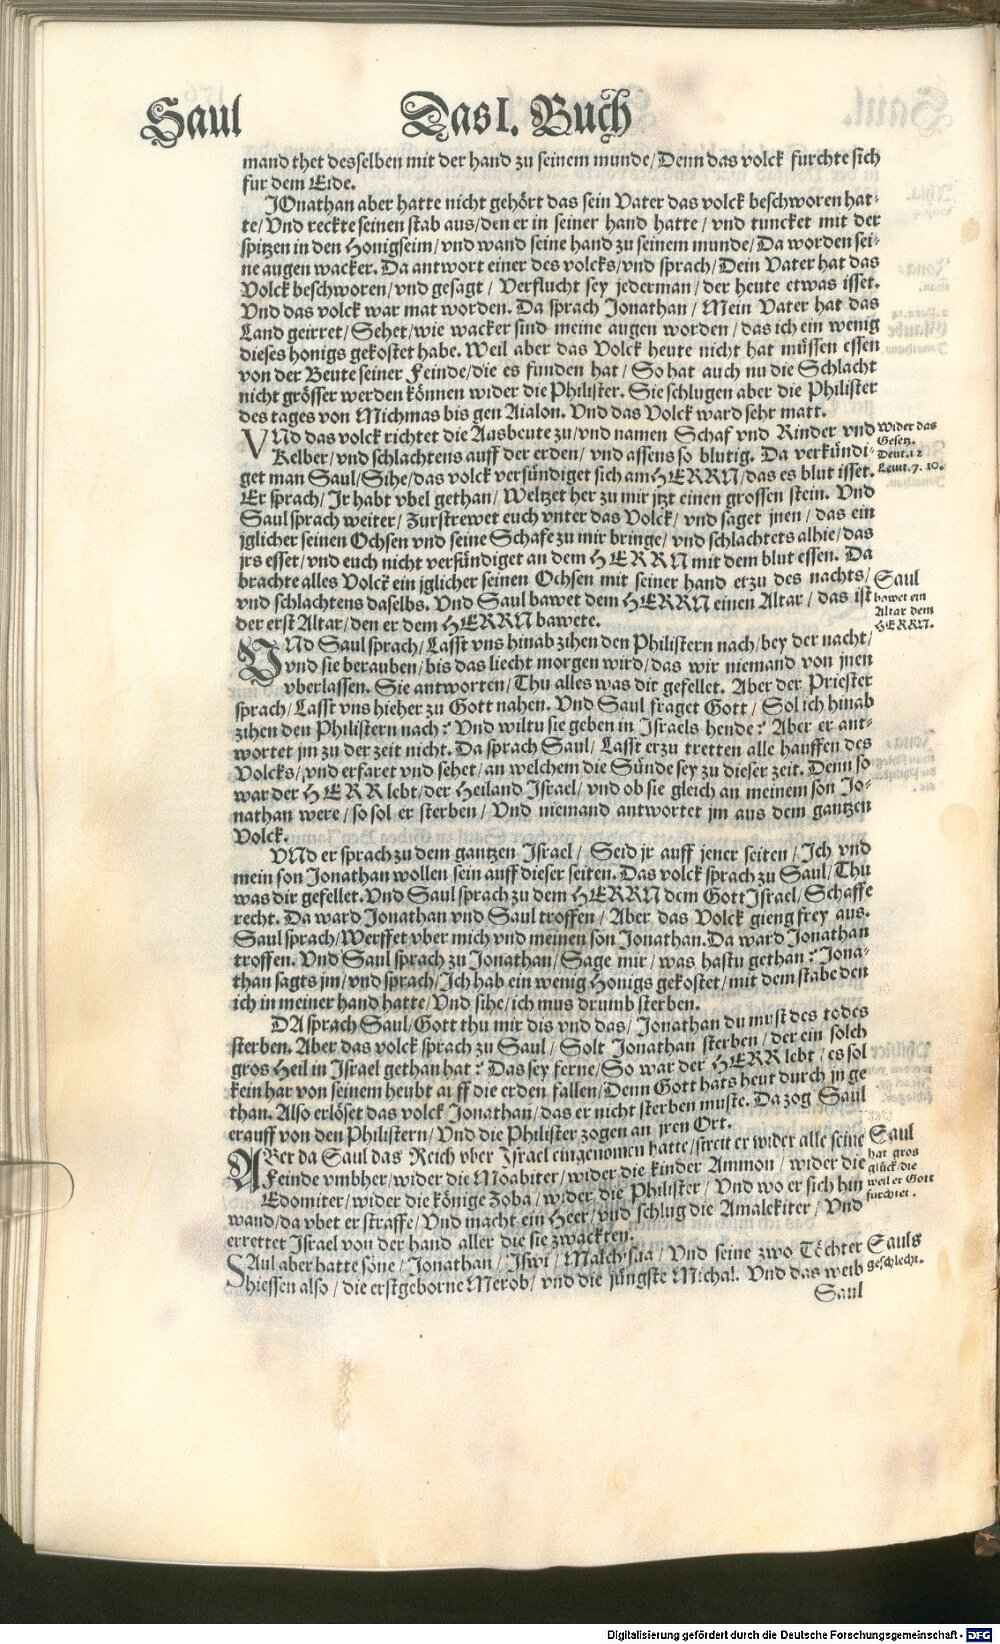 Saul
Das I. Buch
mand thet desselben mit der hand zu seinem munde/Denn das volck furchte sich
fur dem Eide.
JOnathan aber hatte nicht gehört das sein Vater das volck beschworen hat-
te/Vnd reckte seinen stab aus/den er in seiner hand hatte/vnd tuncket mit der
spitzen in den Honigseim/vnd wand seine hand zu seinem munde/Da worden sei-
ne augen wacker. Da antwort einer des volcks/vnd sprach/Dein Vater hat das
Volck beschworen/vnd gesagt/Verflucht sey jederman/der heute etwas isset.
Vnd das volck war mat worden. Da sprach Jonathan/Mein Vater hat das
Land geirret/Sehet/wie wacker sind meine augen worden/das ich ein wenig
dieses honigs gekostet habe. Weil aber das Volck heute nicht hat müssen essen
von der Beute seiner Feinde/die es funden hat/So hat auch nu die Schlacht
nicht grösser werden können wider die Philister. Sie schlugen aber die Philister
des tages von Michmas bis gen Aialon. Vnd das Volck ward sehr matt.
VNd das volck richtet die Ausbeute zu/vnd namen Schaf vnd Rinder vnd
Kelber/vnd schlachtens auff der erden/vnd assens so blutig. Da verkündi-
get man Saul/Sihe/das volck versündiget sich am HERRN/das es blut isset.
Er sprach/Jr habt vbel gethan/Weltzet her zu mir jtzt einen grossen stein. Vnd
Saul sprach weiter/Zurstrewet euch vnter das Volck/vnd saget jnen/das ein
jglicher seinen Ochsen vnd seine Schafe zu mir bringe/vnd schlachtets alhie/das
jrs esset/vnd euch nicht versündiget an dem HERRN mit dem blut essen. Da
brachte alles Volck ein jglicher seinen Ochsen mit seiner hand erzu des nachts/
vnd schlachtens daselbs. Vnd Saul bawet dem HERRN einen Altar/das ist
der erst Altar/den er dem HERRN bawete.
Wider das
Gesetz.
Deut. 12
Leuit. 7. 10.
Saul
bawet ein
Altar dem
HERRN.
VNd Saul sprach/Lasst vns hinab zihen den Philistern nach/bey der nacht/
vnd sie berauben/bis das liecht morgen wird/das wir niemand von jnen
vberlassen. Sie antworten/Thu alles was dir gefellet. Aber der Priester
sprach/Lasst vns hieher zu Gott nahen. Vnd Saul fraget Gott/Sol ich hinab
zihen den Philistern nach? Vnd wiltu sie geben in Israels hende? Aber er ant-
wortet jm zu der zeit nicht. Da sprach Saul/Lasst erzu tretten alle hauffen des
Volcks/vnd erfaret vnd sehet/an welchem die Sünde sey zu dieser zeit. Denn so
war der HERR lebt/der Heiland Israel/vnd ob sie gleich an meinem son Jo-
nathan were/so sol er sterben/Vnd niemand antwortet jm aus dem gantzen
Volck.
VNd er sprach zu dem gantzen Israel/Seid jr auff jener seiten/Ich vnd
mein son Jonathan wollen sein auff dieser seiten. Das volck sprach zu Saul/Thu
was dir gefellet. Vnd Saul sprach zu dem HERRN dem Gott Israel/Schaffe
recht. Da ward Jonathan vnd Saul troffen/Aber das Volck gieng frey aus.
Saul sprach/Werffet vber mich vnd meinen son Jonathan. Da ward Jonathan
troffen. Vnd Saul sprach zu Jonathan/Sage mir/was hastu gethan? Jona-
than sagts jm/vnd sprach/Ich hab ein wenig Honigs gekostet/mit dem stabe den
ich in meiner hand hatte/Vnd sihe/ich mus drumb sterben.
DA sprach Saul/Gott thu mir dis vnd das/Jonathan du must des todes
sterben. Aber das volck sprach zu Saul/Solt Jonathan sterben/der ein solch
gros Heil in Israel gethan hat? Das sey ferne/So war der HERR lebt/es sol
kein har von seinem heubt auff die erden fallen/Denn Gott hats heut durch jn ge
than. Also erlöset das volck Jonathan/das er nicht sterben muste. Da zog Saul
erauff von den Philistern/Vnd die Philister zogen an jren Ort.
ABer da Saul das Reich vber Israel eingenomen hatte/streit er wider alle seine
Feinde vmbher/wider die Moabiter/wider die kinder Ammon/wider die
Edomiter/wider die könige Zoba/wider die Philister/Vnd wo er sich hin
wand/da vbet er straffe/Vnd macht ein Heer/vnd schlug die Amalekiter/Vnd
errettet Israel von der hand aller die sie zwackten.
Saul
hat gros
glück/die
weil er Gott
fürchtet.
SAul aber hatte söne/Jonathan/Iswi/Malchisua/Vnd seine zwo Töchter
hiessen also/die erstgeborne Merob/vnd die jüngste Michal. Vnd das weib
Sauls
geschlecht.
Saul
Digitalisierung gefördert durch die Deutsche Forschungsgemeinschaft - DFG